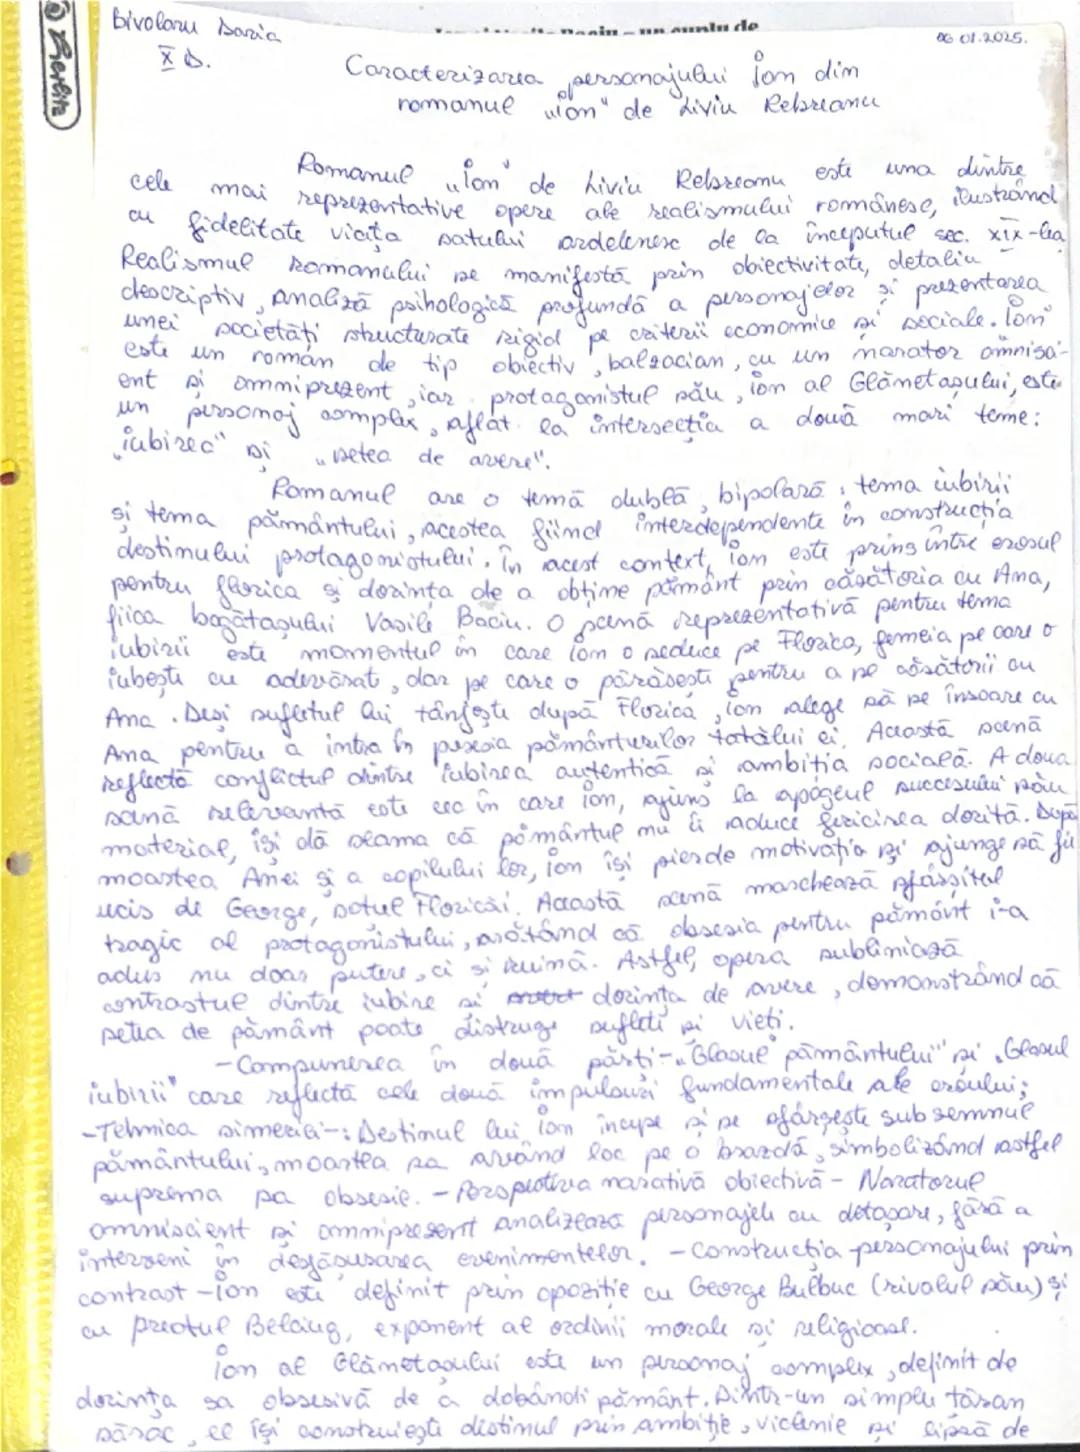 Berlitz
Bivolaru Daria
X D.
un cuplu de
06 01.2025.
Caracterizarea personajului Ion din
romanul „Ion" de Liviu Rebreanu
Romanul „Ion" de Liviu Rebreanu este una dintre
cele mai reprezentative opere ale realismului românesc, ilustrând
cu fidelitate viața satului ardelenesc de la începutul sec. XIX-lea
Realismul romanului se manifestă prin obiectivitate, detaliu
descriptiv, analiză psihologică profundă a personajelor și prezentarea
unei societăți structurate rigid pe criterii economice și sociale. „Ion"
este un român de tip obiectiv, balzacian, cu un narator omnisci-
ent și omniprezent, iar protagonistul său, Ion al Glanetașului, este
un personaj complex, aflat la intersecția a două mari teme:
„iubirea" și „setea de avere".
Romanul are o temă dublă, bipolară: tema iubirii
și tema pământului, acestea fiind interdependente în construcția
destinului protagonistului. În acest context, Ion este prins între erosul
pentru Florica și dorința de a obține pământ prin căsătoria cu Ana,
fiica bogătașului Vasile Baciu. O scenă reprezentativă pentru tema
iubirii este momentul în care Ion o seduce pe Florica, femeia pe care o
iubește cu adevărat, dar pe care o părăsești pentru a se căsătorii cu
Ana. Deși sufletul lui tânjește după Florica, Ion alege să se însoare cu
Ana pentru a intra în posesia pământurilor tatălui ei. Această scenă
reflectă conflictul dintre iubirea autentică și ambiția socială. A doua
scenă relevantă este cea în care Ion, ajuns la apogeul succesului său
material, își dă seama că pământul nu îi aduce fericirea dorită. După
moartea Anei și a copilului lor, Ion își pierde motivația și ajunge să fie
ucis de George, soțul Floricăi. Această scenă marchează sfârșitul
tragic al protagonistului, arătând că obsesia pentru pământ i-a
adus nu doar putere, ci și ruină. Astfel, opera subliniază
contrastul dintre iubire și dorința de avere, demonstrând că
setea de pământ poate distruge suflete și vieți.
-Compunerea în două părți-„Glasul pământului" și „Glasul
iubirii" care reflectă cele două impulsuri fundamentale ale eroului;
-Tehnica simetriei-: Destinul lui Ion începe și se sfârșește sub semnul
pământului, moartea sa având loc pe o brazdă, simbolizând astfel
suprema sa obsesie. - Perspectiva narativă obiectivă - Naratorul
omniscient și omniprezent analizează personajele cu detașare, fără a
interveni în desfășurarea evenimentelor. -Construcția personajului prin
contrast -Ion este definit prin opoziție cu George Bulbuc (rivalul său) și
cu preotul Belciug, exponent al ordinii morale și religioase.
Ion al Glanetașului este un personaj complex, definit de
dorința sa obsesivă de a dobândi pământ. Dintr-un simplu țăran
sărac, el își construiește destinul prin ambiție, viclenie și lipsă de